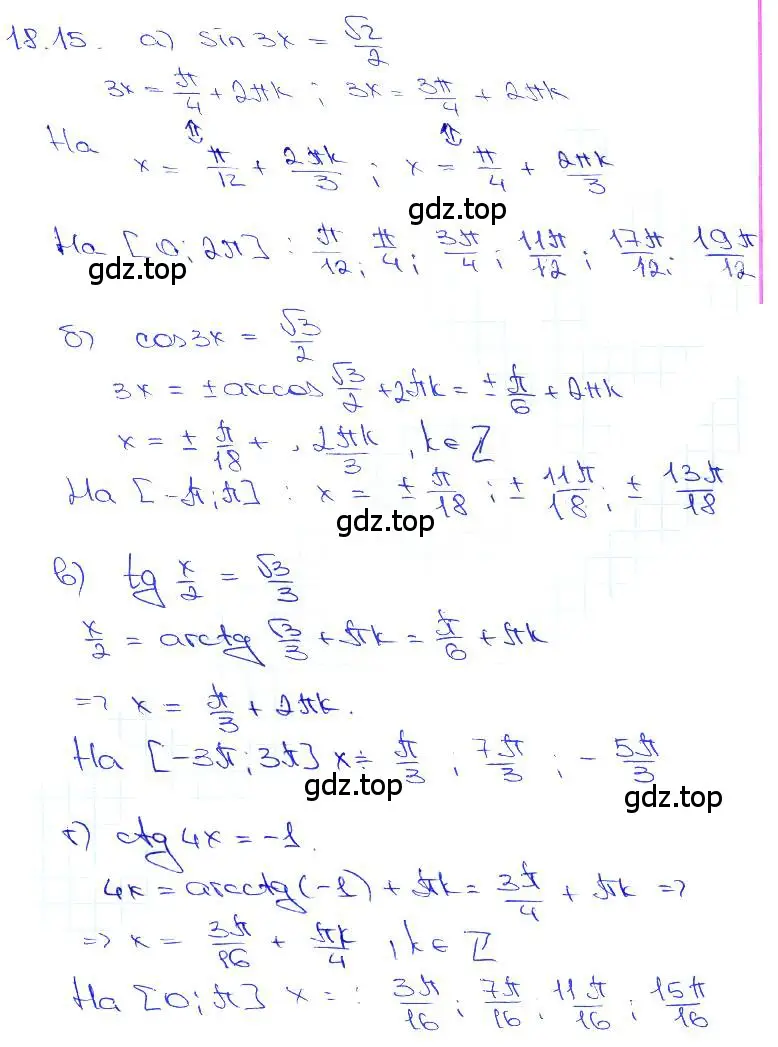 18.15. а) sin 3x = √2/2
3x = π/4 + 2πk ; 3x = 3π/4 + 2πk
⇕ ⇕
На x = π/12 + 2πk/3 ; x = π/4 + 2πk/3
gdz.top
На [0; 2π] : π/12 ; π/4 ; 3π/4 ; 11π/12 ; 17π/12 ; 19π/12
gdz.top
б) cos 3x = √3/2
3x = ± arccos √3/2 + 2πk = ± π/6 + 2πk
x = ± π/18 + 2πk/3 , k ∈ Z
На [-π; π] : x = ± π/18 ; ± 11π/18 ; ± 13π/18
gdz.top
в) tg x/2 = √3/3
x/2 = arctg √3/3 + πk = π/6 + πk
=> x = π/3 + 2πk.
На [-3π; 3π] x = π/3 ; 7π/3 ; - 5π/3
gdz.top gdz.top
г) ctg 4x = -1.
4x = arcctg (-1) + πk = 3π/4 + πk =>
=> x = 3π/16 + πk/4 , k ∈ Z
На [0; π] x = : 3π/16 ; 7π/16 ; 11π/16 ; 15π/16